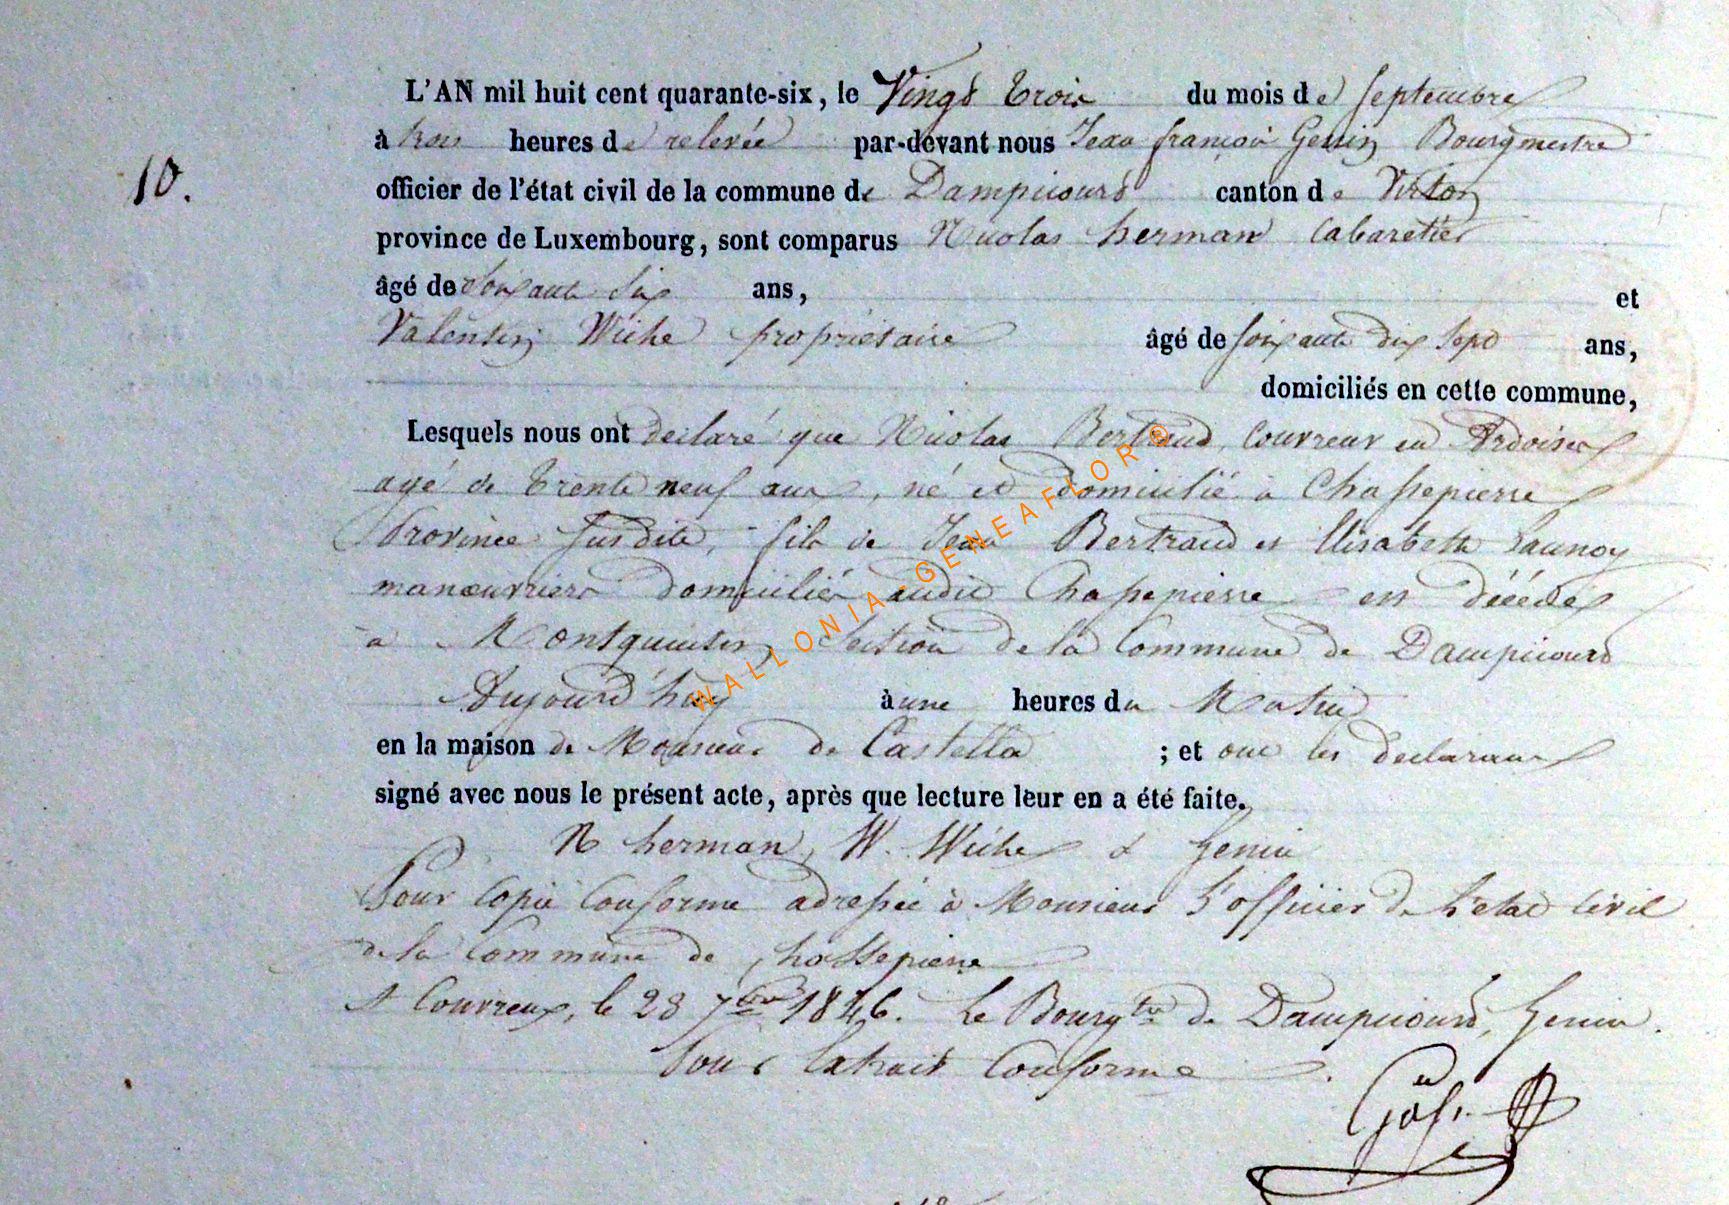 L'AN mil huit cent quarante-six, le Vingt trois du mois de Septembre
à trois heures de relevée par-devant nous Jean françois Genin Bourgmestre
10.
officier de l'état civil de la commune de Dampicourt canton de Virton
province de Luxembourg, sont comparus Nicolas herman Cabaretier
âgé de soixante six ans, et
Valentin Wiche propriétaire âgé de soixante dix sept ans,
domiciliés en cette commune,
Lesquels nous ont declaré que Nicolas Bertrand, Couvreur en Ardoises
agé de trente neuf ans, né et domicilié à Chassepierre
Province susdite, fils de Jean Bertrand et Elisabeth Launoy
manœuvriers domiciliés audit Chassepierre est décédé
à Montquintin, Section de la Commune de Dampicourt
Aujourd'huy à une heures du Matin
en la maison de Monsieur de Castella ; et ont les declarans
signé avec nous le présent acte, après que lecture leur en a été faite.
N herman, W. Wiche & Genin
Pour Copie Conforme adressée à Monsieur l'officier de l'etat Civil
de la Commune de Chassepierre
A Couvreux, le 28 7bre 1846. Le Bourgtre de Dampicourt, Genin.
Pour Extrait Conforme.
WALLONIA-GENEAFLOR®